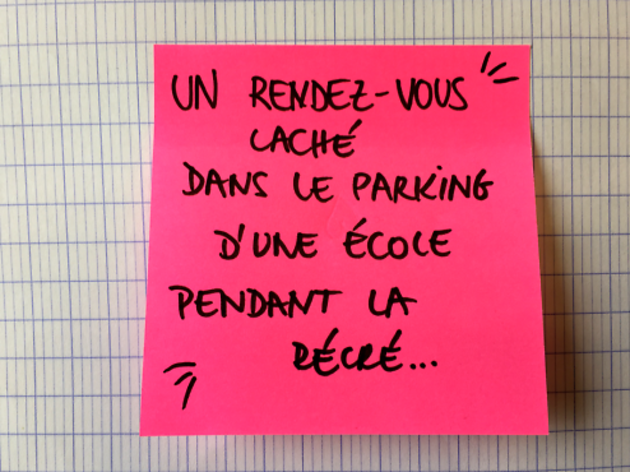 UN RENDEZ-VOUS
CACHÉ
DANS LE PARKING
D'UNE ÉCOLE
PENDANT LA
RÉCRÉ...